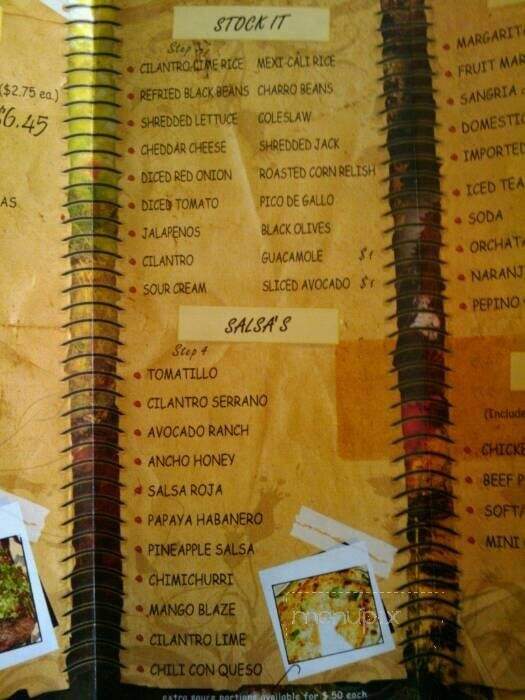 STOCK IT
Step 3
CILANTRO LIME RICE MEXI-CALI RICE
REFRIED BLACK BEANS CHARRO BEANS
SHREDDED LETTUCE COLESLAW
CHEDDAR CHEESE SHREDDED JACK
DICED RED ONION ROASTED CORN RELISH
DICED TOMATO PICO DE GALLO
JALAPENOS BLACK OLIVES
CILANTRO GUACAMOLE $1
SOUR CREAM SLICED AVOCADO $1
SALSA'S
Step 4
TOMATILLO
CILANTRO SERRANO
AVOCADO RANCH
ANCHO HONEY
SALSA ROJA
PAPAYA HABANERO
PINEAPPLE SALSA
CHIMICHURRI
MANGO BLAZE
CILANTRO LIME
CHILI CON QUESO
extra sauce portions available for $.50 each
($2.75 ea.)
$6.45
AS
MARGARIT
FRUIT MAR
SANGRIA
DOMESTIC
IMPORTED
ICED TEA
SODA
ORCHATA
NARANJ
PEPINO
(Include
CHICKE
BEEF P
SOFT/
MINI
menupix